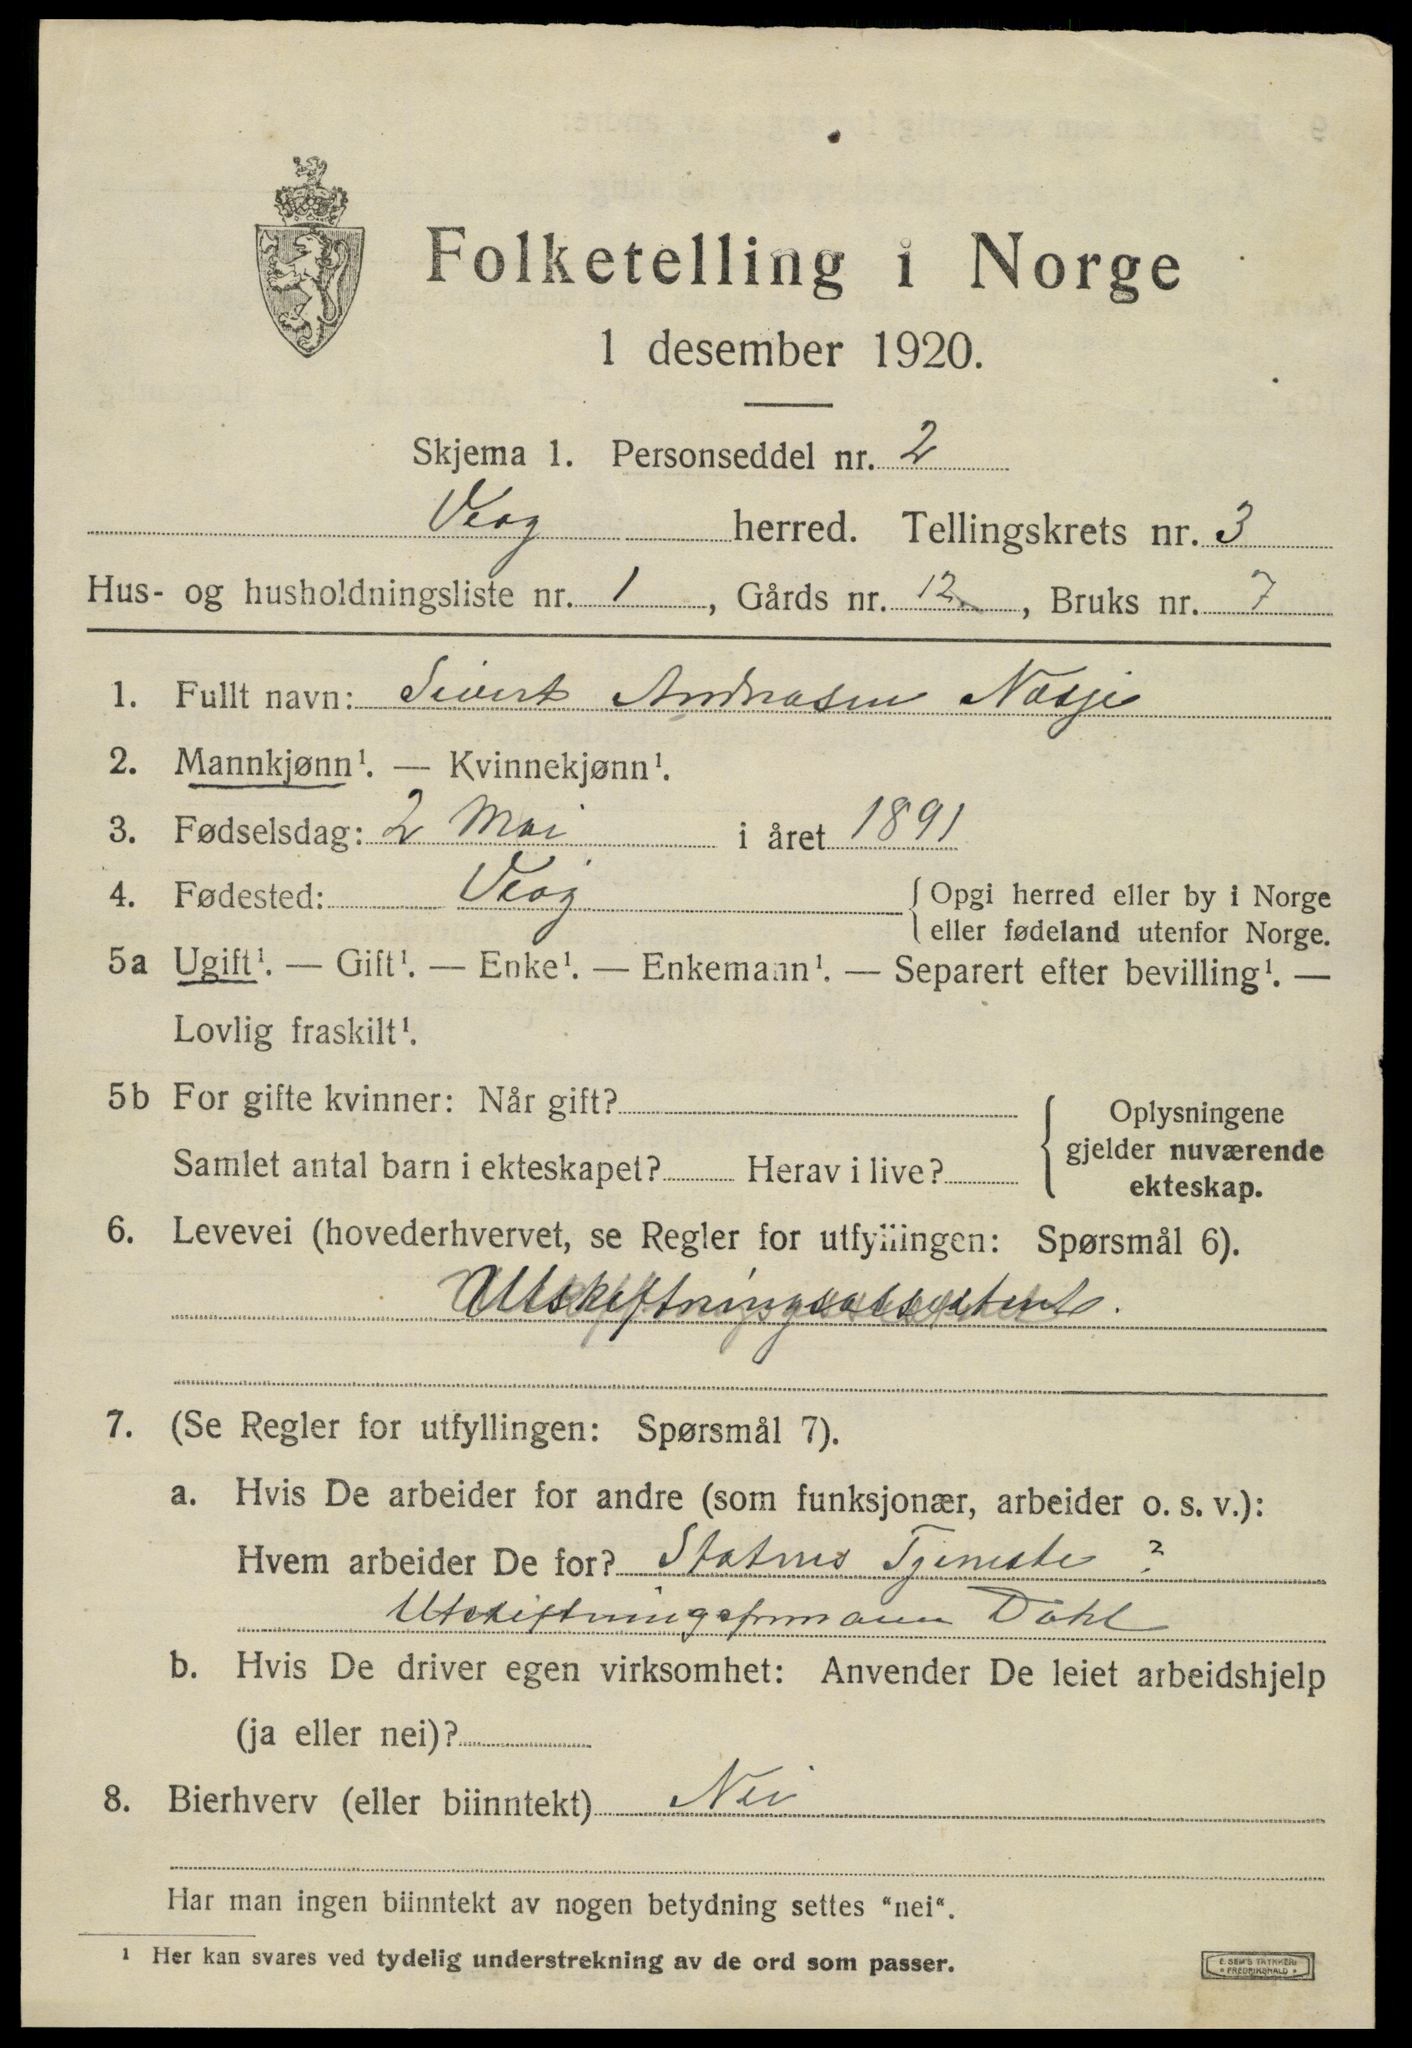 Folketelling i Norge
1 desember 1920.
Skjema 1. Personseddel nr. 2
Veøy herred. Tellingskrets nr. 3
Hus- og husholdningsliste nr. 1, Gårds nr. 12, Bruks nr. 7
1. Fullt navn: Sivert Andreasen Nesje
2. Mannkjønn¹. — Kvinnekjønn¹.
3. Fødselsdag: 2 Mai i året 1891
4. Fødested: Veøy { Opgi herred eller by i Norge
eller fødeland utenfor Norge.
5a Ugift¹. — Gift¹. — Enke¹. — Enkemann¹. — Separert efter bevilling¹. —
Lovlig fraskilt¹.
5b For gifte kvinner: Når gift?
Samlet antal barn i ekteskapet? Herav i live?
{ Oplysningene
gjelder nuværende
ekteskap.
6. Levevei (hovederhvervet, se Regler for utfyllingen: Spørsmål 6).
Utskiftningsassistent.
7. (Se Regler for utfyllingen: Spørsmål 7).
a. Hvis De arbeider for andre (som funksjonær, arbeider o. s. v.):
Hvem arbeider De for? Statens Tjeneste ?
Utskiftningsformann Dahl
b. Hvis De driver egen virksomhet: Anvender De leiet arbeidshjelp
(ja eller nei)?
8. Bierhverv (eller biinntekt) Nei
Har man ingen biinntekt av nogen betydning settes "nei".
¹ Her kan svares ved tydelig understrekning av de ord som passer.
E. SEM'S TRYKKERI
* FREDRIKSHALD *